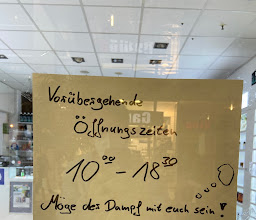 Vorübergehende
Öffnungszeiten
10⁰⁰ - 18³⁰
Möge der Dampf mit euch sein!